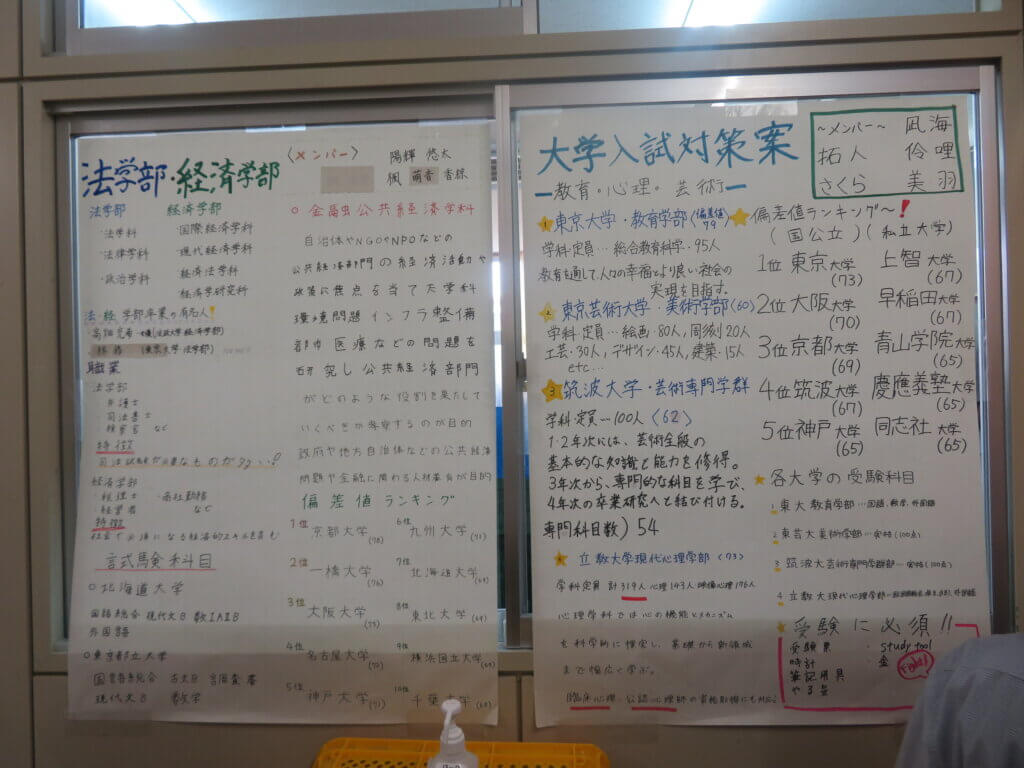 法学部・経済学部
〈メンバー〉
陽輝 悠太
楓 萌香 香緑
法学部
・法学科
・法律学科
・政治学科
経済学部
・国際経済学科
・現代経済学科
・経済法学科
経済学研究科
法・経 学部卒業の有名人!
(東京大学 法学部)
職業
法学部
・弁護士
・司法書士
・検察官 など
特徴
司法試験が必要なものが多い!!
経済学部
・税理士 ・商社勤務
・経営者 など
特徴
社会で必須になる経済的スキルを
試験科目
○北海道大学
国語総合 現代文B 数ⅠAⅡB
外国語
○東京都立大学
国語総合
現代文B 数学
○金融公共経済学科
自治体やNGOやNPOなどの
公共経済部門の経済活動や
政策に焦点を当て大学科
環境問題 インフラ整備
都市 医療などの問題を
研究し公共経済部門
がどのような役割を果たして
いくべきか考察するのが目的
政府や地方自治体などの公共経済
問題や金融に関わる人材養育が目的
偏差値ランキング
1位 京都大学(78)
2位 一橋大学(76)
3位 大阪大学(75)
4位 名古屋大学
5位 神戸大学(71)
6位 九州大学(71)
7位 北海道大学(69)
8位 東北大学(69)
9位 横浜国立大学
10位 千葉大学
大学入試対策案
ー教育・心理・芸術ー
〜メンバー〜 凪海
拓人 伶哩
さくら 美羽
1 東京大学・教育学部(偏差値
学科・定員…総合教育科学・95人
教育を通して人々の幸福より良い社会の
実現を目指す。
2 東京芸術大学・美術学部(60)
学科・定員…絵画・80人,周刻20人
工芸・30人,デザイン・45人,建築・15人
etc…
3 筑波大学・芸術専門学群
学科・定員…100人〈62〉
1・2年次には、芸術全般の
基本的な知識と能力を修得。
3年次から、専門的な科目を学び、
4年次の卒業研究へと結び付ける。
専門科目数)54
立教大学現代心理学部〈73〉
学科定員 計319人 心理143人 映像心理176人
心理学科では心の機能とメカニズム
を科学的に検定し、基礎から新領域
まで幅広く学ぶ。
臨床心理、公認心理師の資格取得にも対応
偏差値ランキング〜!
(国公立)(私立大学)
1位 東京大学(73) 上智大学(67)
2位 大阪大学(70) 早稲田大学(67)
3位 京都大学(69) 青山学院大学(65)
4位 筑波大学(67) 慶應義塾大学(65)
5位 神戸大学(65) 同志社大学(65)
各大学の受験科目
1 東大教育学部…国語、数学、外国語
2 東芸大美術学部…実技(100点)
3 筑波大芸術専門学群部…実技(100点)
4 立教大現代心理学部…
受験に必須!!
受験票 ・study tool
時計 ・金
筆記用具
やる気